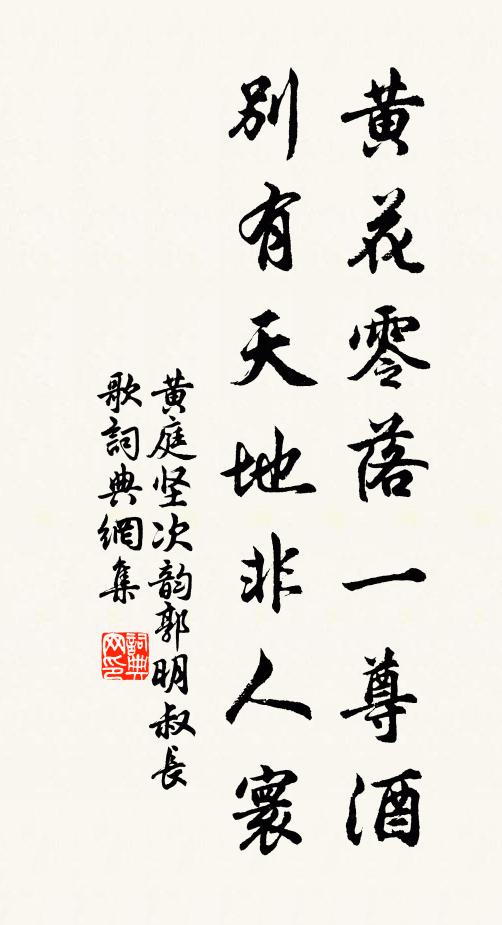 黄花零落一尊酒
別有天地非人寰
黄庭坚次韵郭明叔長
歌詞典網集
詞典網印